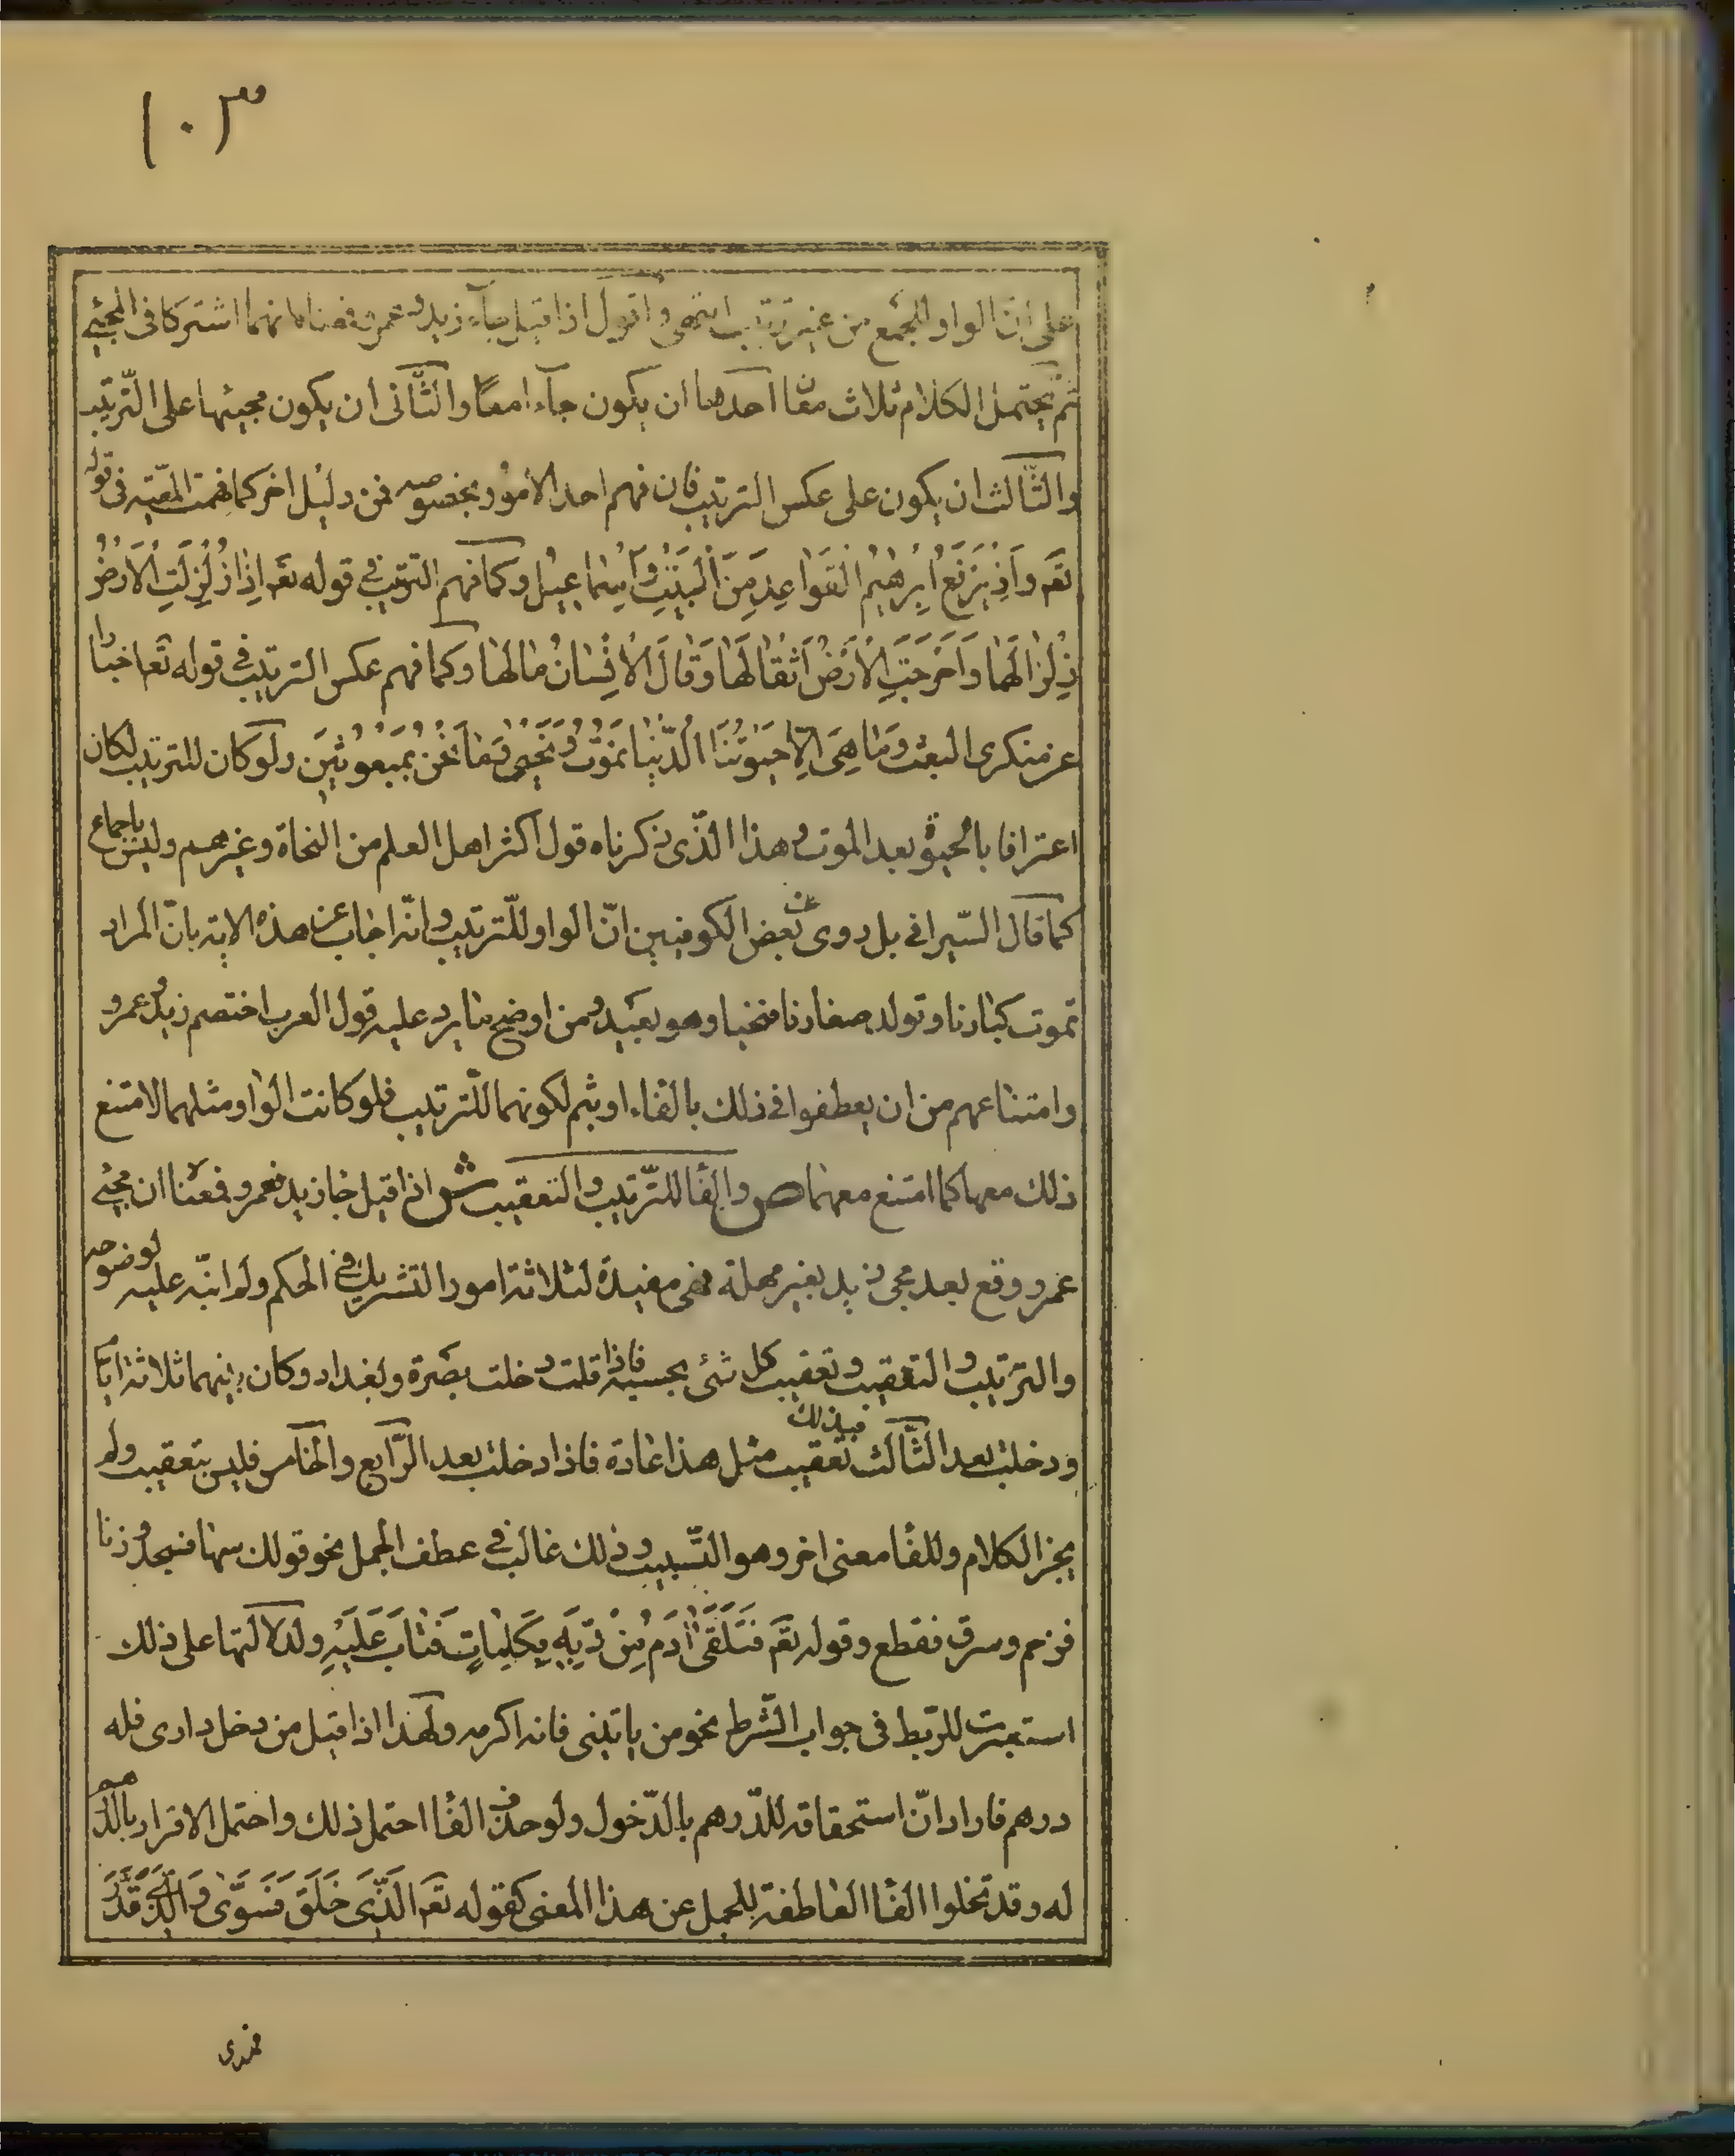 ١٠٣
على ان الواو للجمع من غير ترتيب انتهى واقول اذا قيل جآء زيد وعمرو فمعناه انهما اشتركا فى المجئ
ثم يحتمل الكلام ثلاث معان احدها ان يكون جآءا معًا والثّانى ان يكون مجيئهما على التّرتيب
والثّالث ان يكون على عكس الترتيب فان فهم احد الامور بخصوصه فمن دليل اخر كما فهمت المعّية فى قوله
تعَ وَاِذْ يَرْفَعُ اِبْرٰهيمُ الْقَوٰاعِدَ مِنَ الْبَيْتِ وَاِسْمٰاعيلُ وكما فهم الترتيب فى قوله تعَ اِذٰا زُلْزِلَتِ الْاَرْضُ
زِلْزٰالَهٰا وَاَخْرَجَتِ الْاَرْضُ اَثْقٰالَهٰا وَقٰالَ الْاِنْسٰانُ مٰا لَهٰا وكما فهم عكس الترتيب فى قوله تعا اخبارًا
عن منكرى البعث وَمٰا هِىَ اِلّٰا حَيٰوتُنَا الدُّنْيٰا نَمُوتُ وَنَحْيىٰ وَمٰا نَحْنُ بِمَبْعُوثينَ ولو كان للترتيب لكان
اعترافا بالحيوة بعد الموت وهذا الّذى ذكرناه قول اكثر اهل العلم من النحاة وغيرهم وليس باجماع
كما قال السّيرافى بل روى عن بعض الكوفيين انّ الواو للّترتيب وانّه اجاب عن هذه الاية بانّ المراد
تموت كبارنا وتولد صغارنا فنحيا وهو بعيد ومن اوضح ما يرد عليه قول العرب اختصم زيد وعمرو
وامتناعهم من ان يعطفوا فى ذلك بالفاء او بثم لكونهما للّترتيب فلو كانت الواو مثلهما لامتنع
ذلك معها كما امتنع معهما ص والفا للتّرتيب والتعقيب ش اذا قيل جا زيد فعمرو فمعنٰا ان مجئ
عمرو وقع بعد مجئ زيد بغير مهلة فهى مفيدة لثلاثة امور التشريك فى الحكم ولم انبّه عليه لوضوحه
والترتيب والتعقيب وتعقيب كل شئ بحسبه فاذا قلت دخلت بصرة وبغداد وكان بينهما ثلاثة ايام
ودخلت بعد الثّالث فذلك تعقيب مثل هذا عادة فاذا دخلت بعد الرّابع والخامس فليس بتعقيب ولم
يجز الكلام وللفا معنى اخر وهو التّسبيب وذلك غالب فى عطف الجمل نحو قولك سها فسجد وزنا
فرجم وسرق فقطع وقوله تعَ فَتَلَقّٰى اٰدَمُ مِنْ رَبِّهِ كَلِمٰاتٍ فَتٰابَ عَلَيْهِ ولدلالتها على ذلك
استعيرت للرّبط فى جواب الشّرط نحو من ياتينى فانه اكرمه ولهذا اذا قيل من دخل دارى فله
درهم فاراد انّ استحقاقه للدّرهم بالدّخول ولو حذف الفا احتمل ذلك واحتمل الاقرار بالدّرهم
له وقد تخلوا الفا العاطفة للجمل عن هذا المعنى كقوله تعَ الَّذى خَلَقَ فَسَوّٰى وَالَّذى قَدَّرَ
فهدى